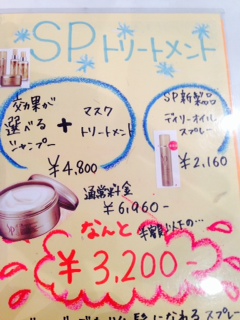 SPトリートメント
効果が
選べる
シャンプー
+
マスク
トリートメント
¥4,800
SP新製品
デイリーオイル
スプレー
¥2,160
通常料金
¥6,960-
なんと
半額以下の…
¥3,200-
髪になれるスプレー